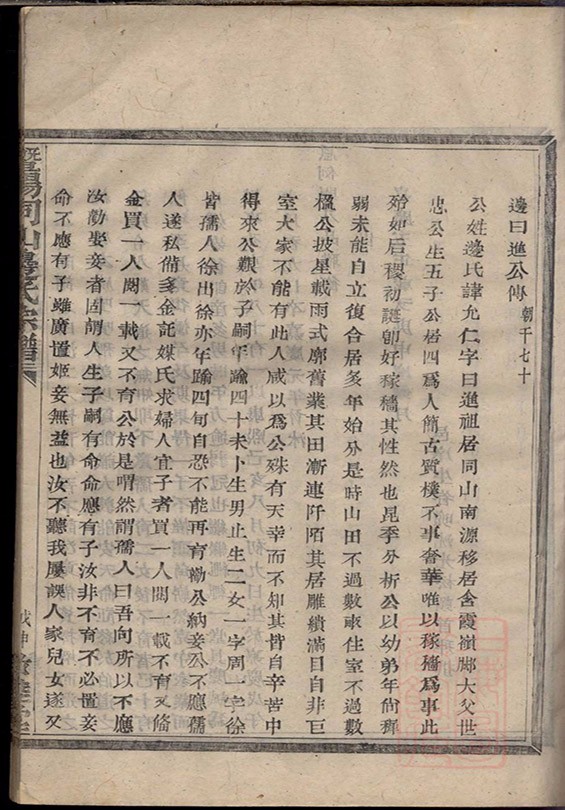 邊曰進公傳 朝千七十
公姓邊氏諱允仁字曰進祖居同山南源移居舍霞嶺鄢大父世
忠公生五子公居四爲人簡古質樸不事奢華唯以稼穡爲事此
殆如后稷初誕卽好稼穡其性然也昆季分析公以幼弟年尙稺
弱未能自立復合居多年始分是時山田不過數畝住室不過數
楹公披星載雨式廓舊業其田漸連阡陌其居雕繢滿目自非巨
室大家不能有此人咸以爲公殊有天幸而不知其皆自辛苦中
得來公艱於子嗣年踰四十未卜生男止生二女一字周一字徐
皆孺人徐出徐亦年踰四旬自恐不能再育勸公納妾公不應孺
人遂私備多金託媒氏求婦人宜子者買一人閱一載不育又備
金買一人閱一載又不育公於是喟然謂孺人曰吾向所以不應
汝勸娶妾者固謂人生子嗣有命命應有子汝非不育不必置妾
命不應有子雖廣置姬妾無益也汝不聽我屢誤人家兒女遂又
暨陽同山邊氏宗譜
戊申